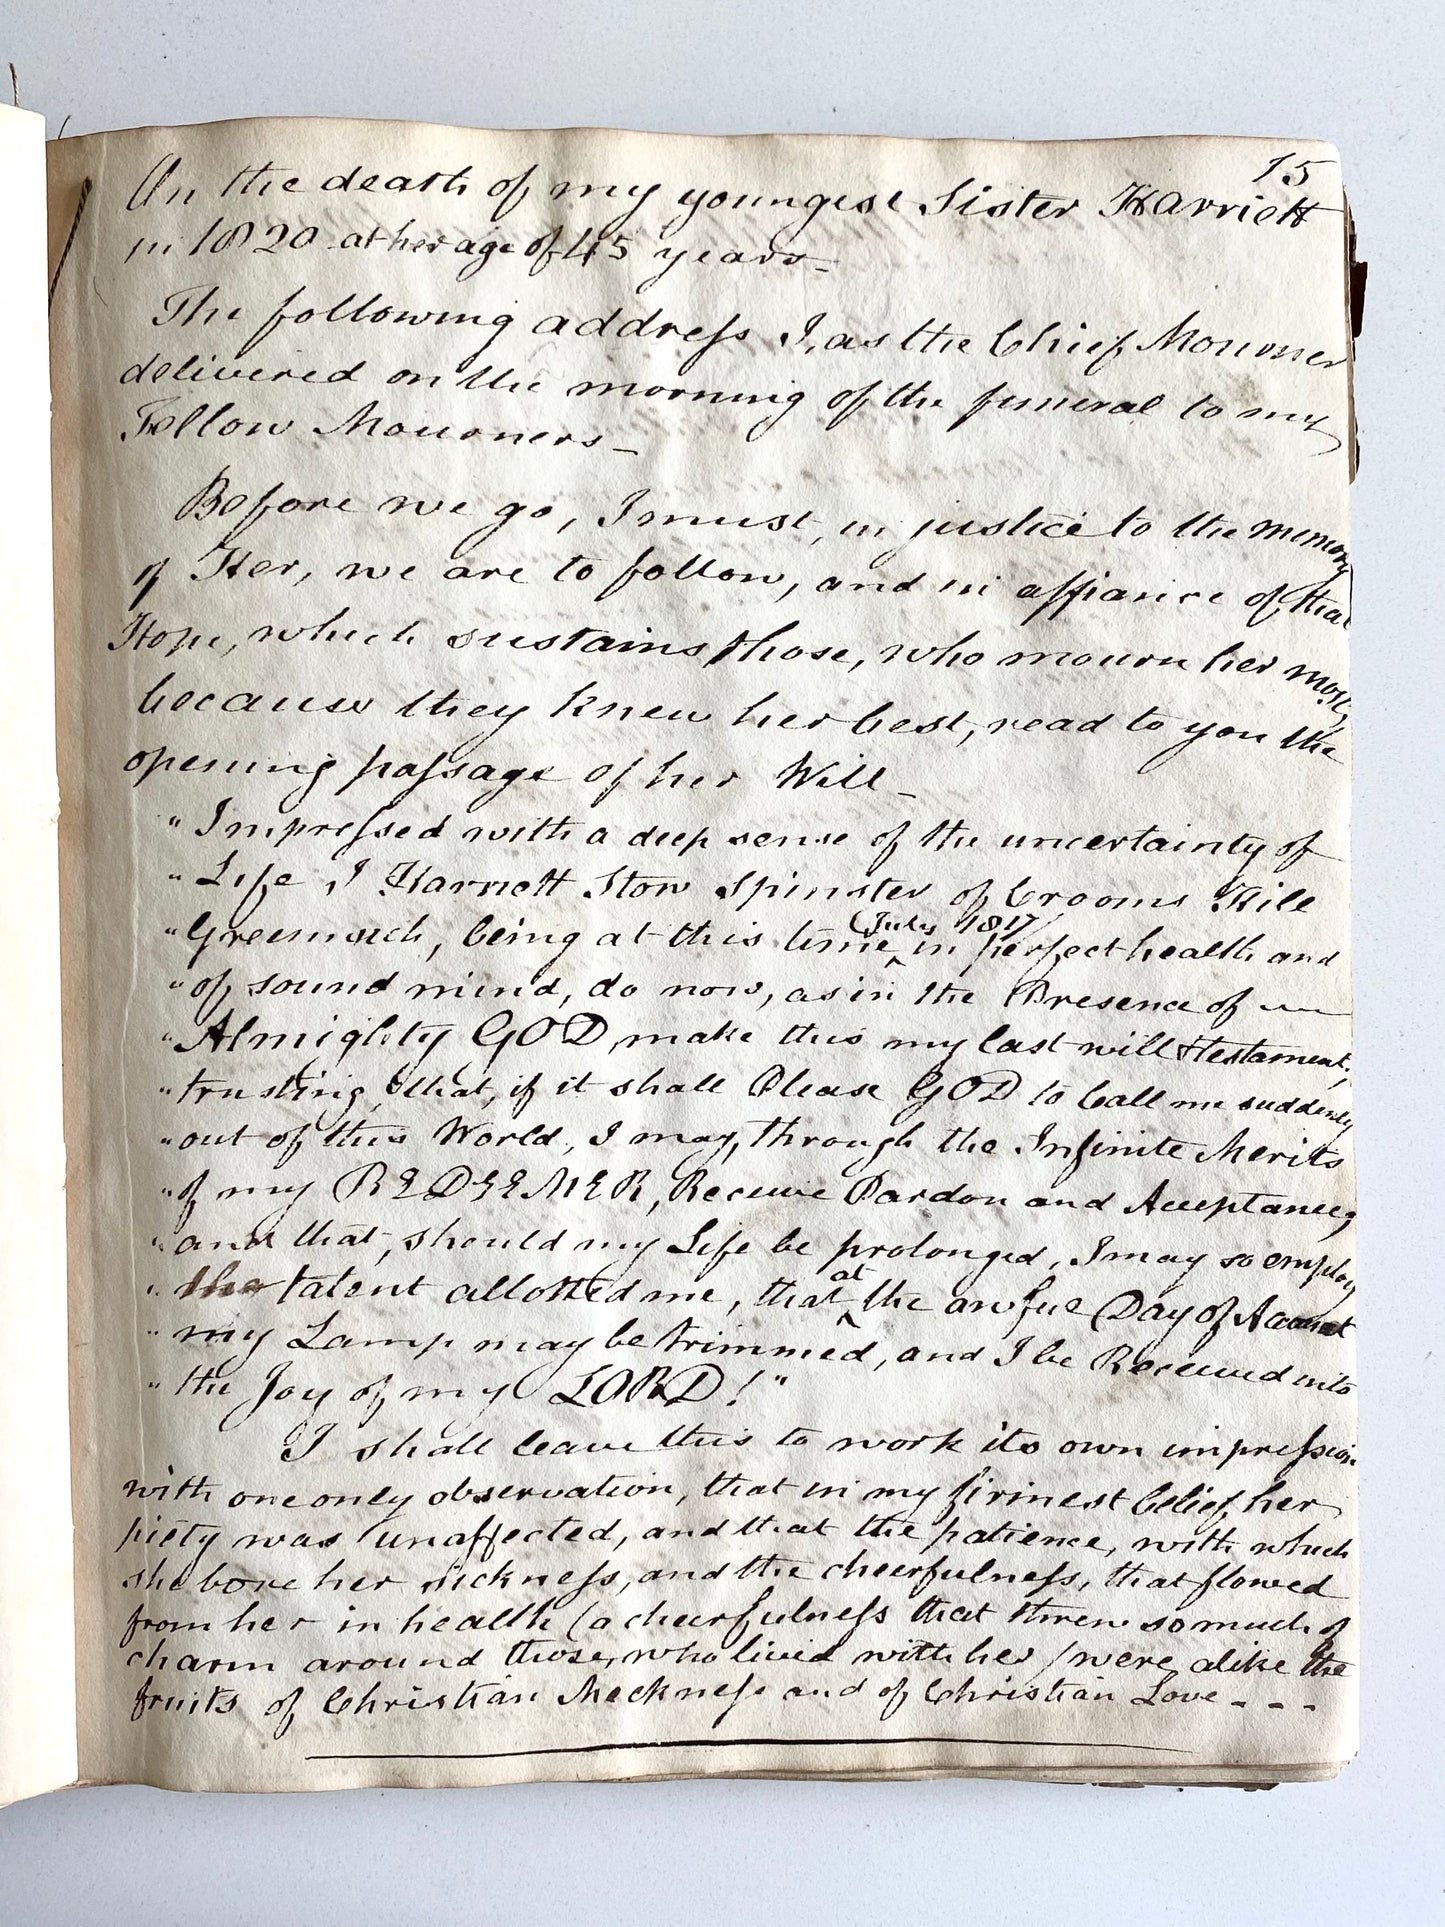 15
On the death of my youngest Sister Harriett
in 1820 at her age of 45 years_
The following address I, as the Chief Mourner
delivered on the morning of the funeral to my
Fellow Mourners_
Before we go, I must, in justice to the memory
of Her, we are to follow, and in affiance of that
Hope, which sustains those, who mourn her most,
because they knew her best, read to you the
opening paſsage of her Will_
" Impreſsed with a deep sense of the uncertainty of
" Life, I Harriett Stow Spinster of Crooms Hill
" Greenwich, being at this time ‸ (July 1817) in perfect health and
" of sound mind, do now, as in the Presence of
" Almighty GOD, make this my last will & testament;
" trusting, that, if it shall Please GOD to Call me suddenly
" out of this World, I may, through the Infinite Merits
" of my REDEEMER, Receive Pardon and Acceptance;
" and that, should my Life be prolonged, I may so employ
" the talent allotted me, that ‸ at the awful Day of Account
" my Lamp may be trimmed, and I be Received into
" the Joy of my LORD!"
I shall leave this to work its own impreſsion
with one only observation, that in my firmest belief, her
piety was unaffected, and that the patience, with which
she bore her sickneſs, and the cheerfulneſs, that flowed
from her in health (a cheerfulneſs that threw so much of
charm around those, who lived with her) were alike the
fruits of Christian Meekneſs and of Christian Love - - -